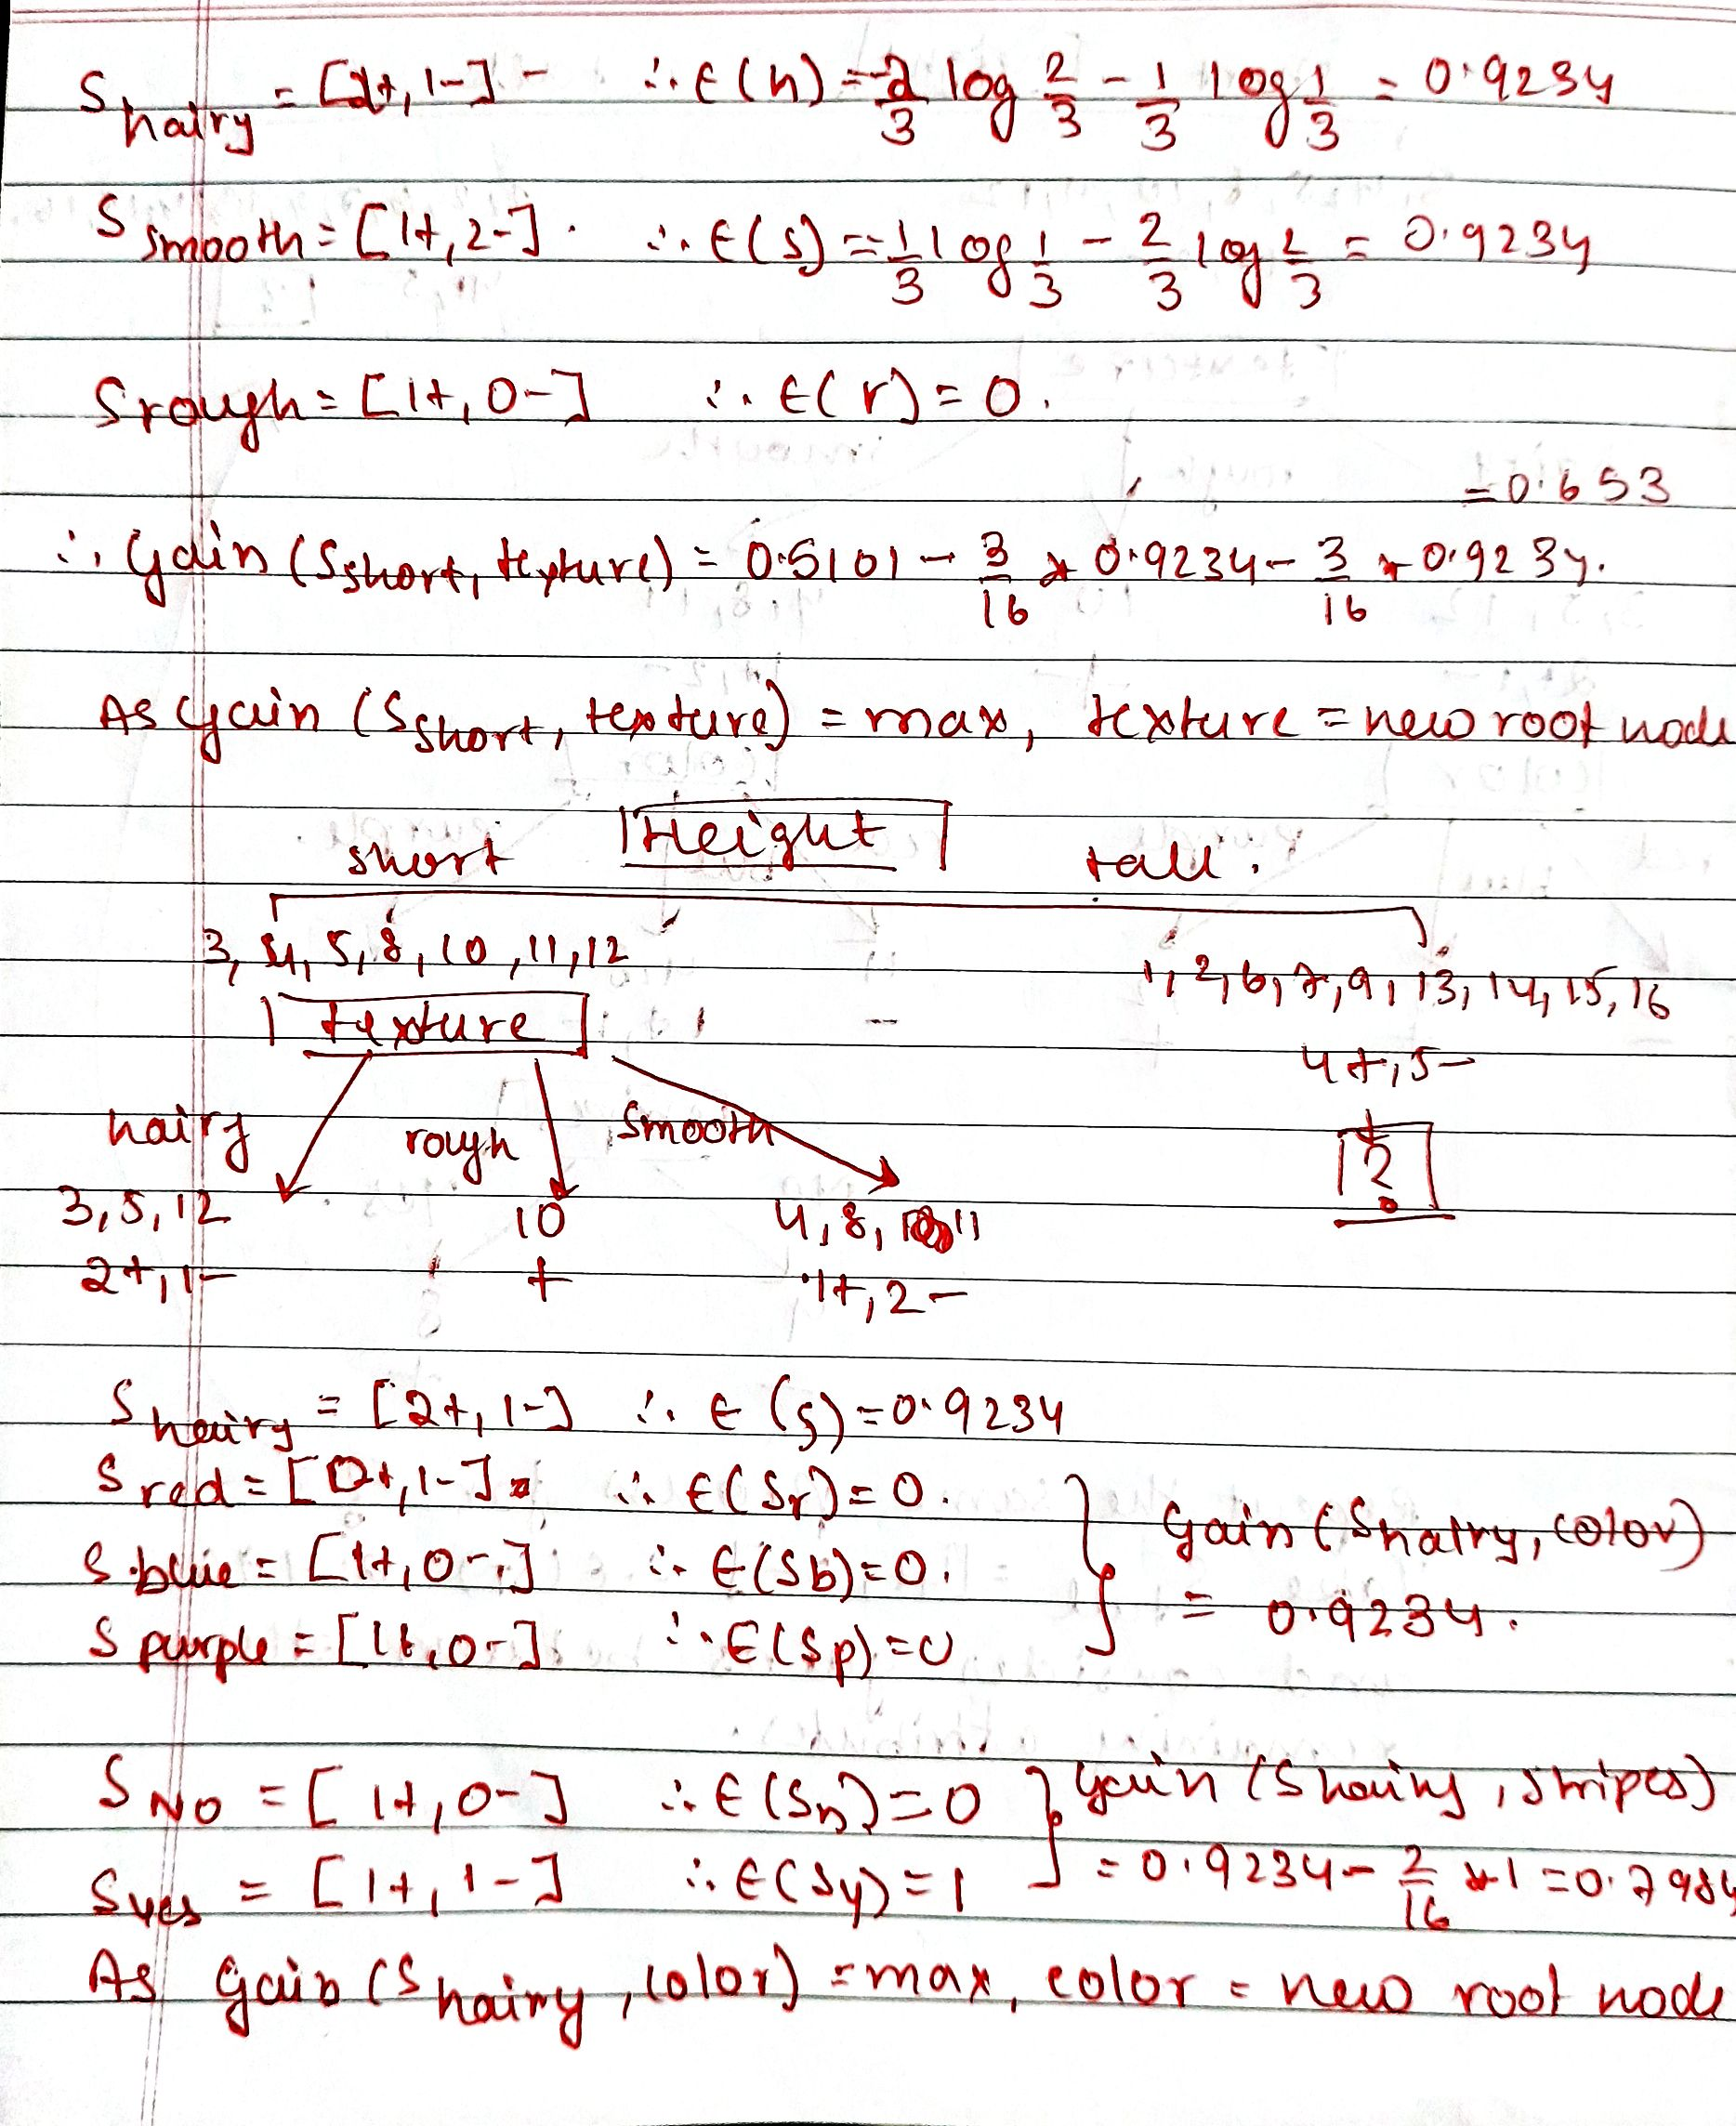 S hairy = [2+, 1-] - ∴ E(h) = -2/3 log 2/3 - 1/3 log 1/3 = 0.9234
S smooth = [1+, 2-]. ∴ E(s) = -1/3 log 1/3 - 2/3 log 2/3 = 0.9234
S rough = [1+, 0-] ∴ E(r) = 0.
= 0.653
∴ Gain (S short, texture) = 0.5101 - 3/16 * 0.9234 - 3/16 * 0.9234.
As Gain (S short, texture) = max, texture = new root node
short Height tall.
3, 4, 5, 8, 10, 11, 12
1, 2, 6, 7, 9, 13, 14, 15, 16
texture
4+, 5-
hairy rough smooth ?
3, 5, 12 10 4, 8, 11
2+, 1- + 1+, 2-
S hairy = [2+, 1-] ∴ E(s) = 0.9234
S red = [0+, 1-] ∴ E(Sr) = 0.
Gain (S hairy, color)
S blue = [1+, 0-] ∴ E(Sb) = 0.
= 0.9234.
S purple = [1+, 0-] ∴ E(Sp) = 0
S NO = [1+, 0-] ∴ E(Sn) = 0 } Gain (S hairy, stripes)
S yes = [1+, 1-] ∴ E(Sy) = 1 = 0.9234 - 2/16 * 1 = 0.7984
As Gain (S hairy, color) = max, color = new root node